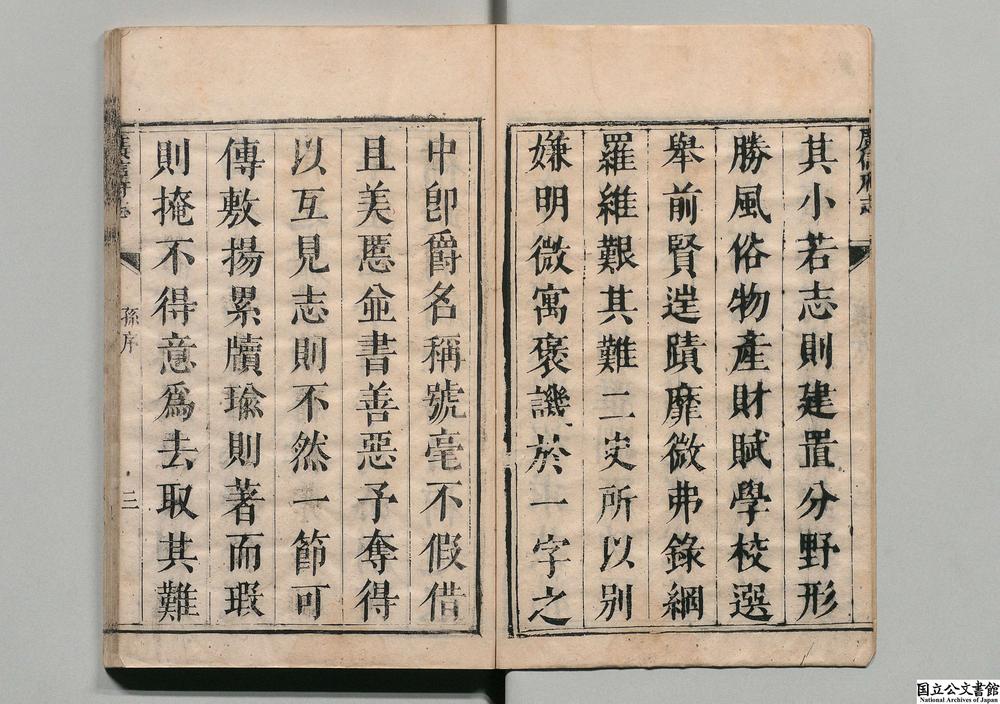 其小若志則建置分野形
勝風俗物產財賦學校選
舉前賢逆蹟靡微弗錄網
羅維艱其難二史所以別
嫌明微寓褒譏於一字之
中卽爵名稱號毫不假借
且美慝並書善惡予奪得
以互見志則不然一節可
傳敷揚累牘瑜則著而瑕
則掩不得意為去取其難
廣信府志
孫序
二
国立公文書館
National Archives of Japan